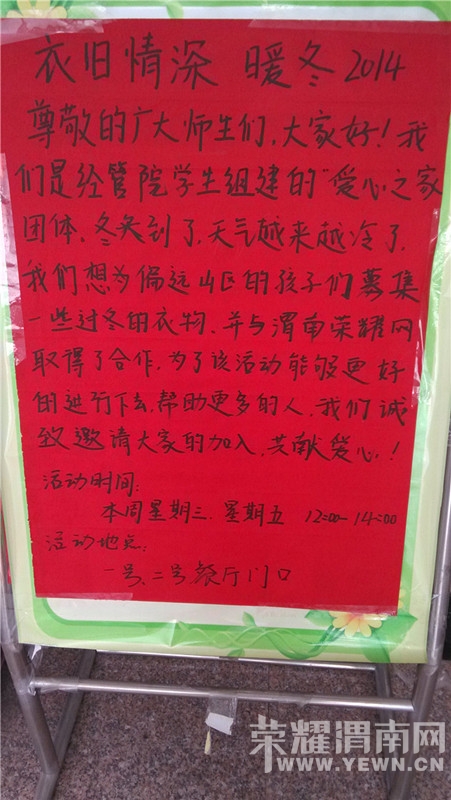 衣旧情深 暖冬2014
尊敬的广大师生们,大家好!我
们是经管院学生组建的"爱心之家
团体,冬天到了,天气越来越冷了,
我们想为偏远山区的孩子们募集
一些过冬的衣物,并与渭南荣耀网
取得了合作,为了该活动能够更好
的进行下去,帮助更多的人,我们诚
致邀请大家的加入,共献爱心!
活动时间:
本周星期三、星期五 12:00-14:00
活动地点:
一号、二号餐厅门口
荣耀渭南网
WWW.YEWN.CN